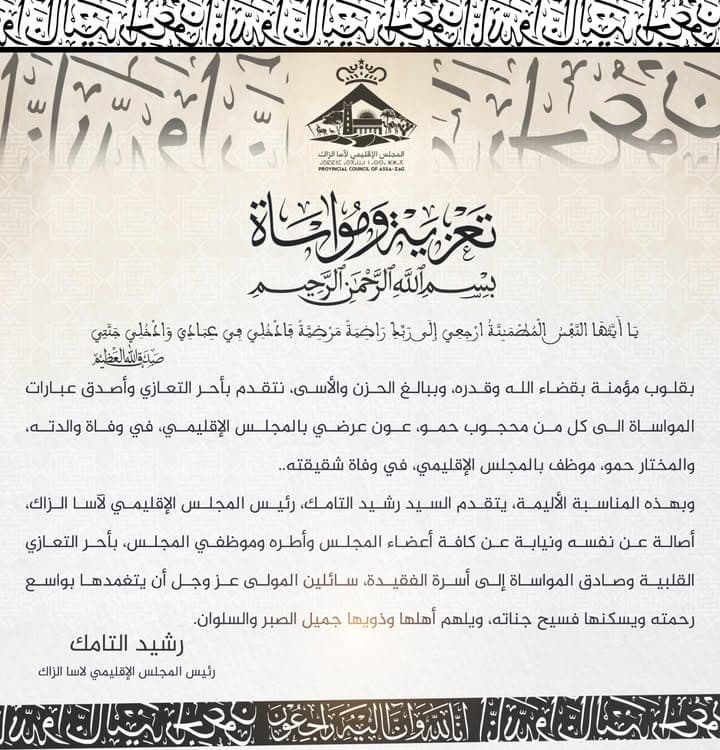 المجلس الإقليمي لآسا الزاك
PROVINCIAL COUNCIL OF ASSA-ZAG
تعزية ومواساة
بسم الله الرحمن الرحيم
يا أيتها النفس المطمئنة ارجعي إلى ربك راضية مرضية فادخلي في عبادي وادخلي جنتي
صدق الله العظيم
بقلوب مؤمنة بقضاء الله وقدره، وببالغ الحزن والأسى، نتقدم بأحر التعازي وأصدق عبارات
المواساة الى كل من محجوب حمو، عون عرضي بالمجلس الإقليمي، في وفاة والدته،
والمختار حمو، موظف بالمجلس الإقليمي، في وفاة شقيقته..
وبهذه المناسبة الأليمة، يتقدم السيد رشيد التامك، رئيس المجلس الإقليمي لآسا الزاك،
أصالة عن نفسه ونيابة عن كافة أعضاء المجلس وأطره وموظفي المجلس، بأحر التعازي
القلبية وصادق المواساة إلى أسرة الفقيدة، سائلين المولى عز وجل أن يتغمدها بواسع
رحمته ويسكنها فسيح جناته، ويلهم أهلها وذويها جميل الصبر والسلوان.
رشيد التامك
رئيس المجلس الإقليمي لاسا الزاك
إنا لله وإنا إليه راجعون